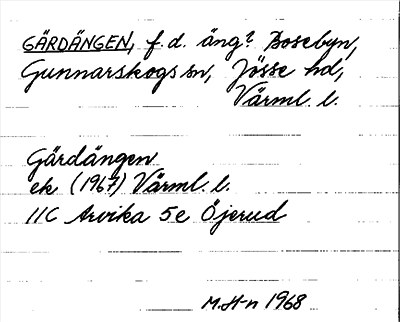 GÄRDÄNGEN, f.d. äng? Bosebyn,
Gunnarskogs sn, Jösse hd,
Värml. l.
Gärdängen
ek (1967) Värml. l.
11C Arvika 5e Öjerud
M.H-n 1968